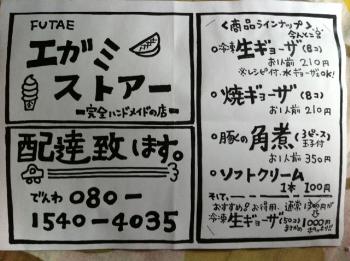 FUTAE
エガミ
ストアー
ー完全ハンドメイドの店ー
配達致します。
でんわ 080-
1540-4035
<商品ラインナップ>
○冷凍生ギョーザ(8コ)
お1人前 210円
※レシピ付、水ギョーザもOK!
○焼ギョーザ(8コ)
お1人前 210円
○豚の角煮(3ピース 玉子付)
お1人前 350円
○ソフトクリーム
1本 100円
そして、
おすすめ!お得用、通常1300円が
冷凍生ギョーザ(50コ) 1000円